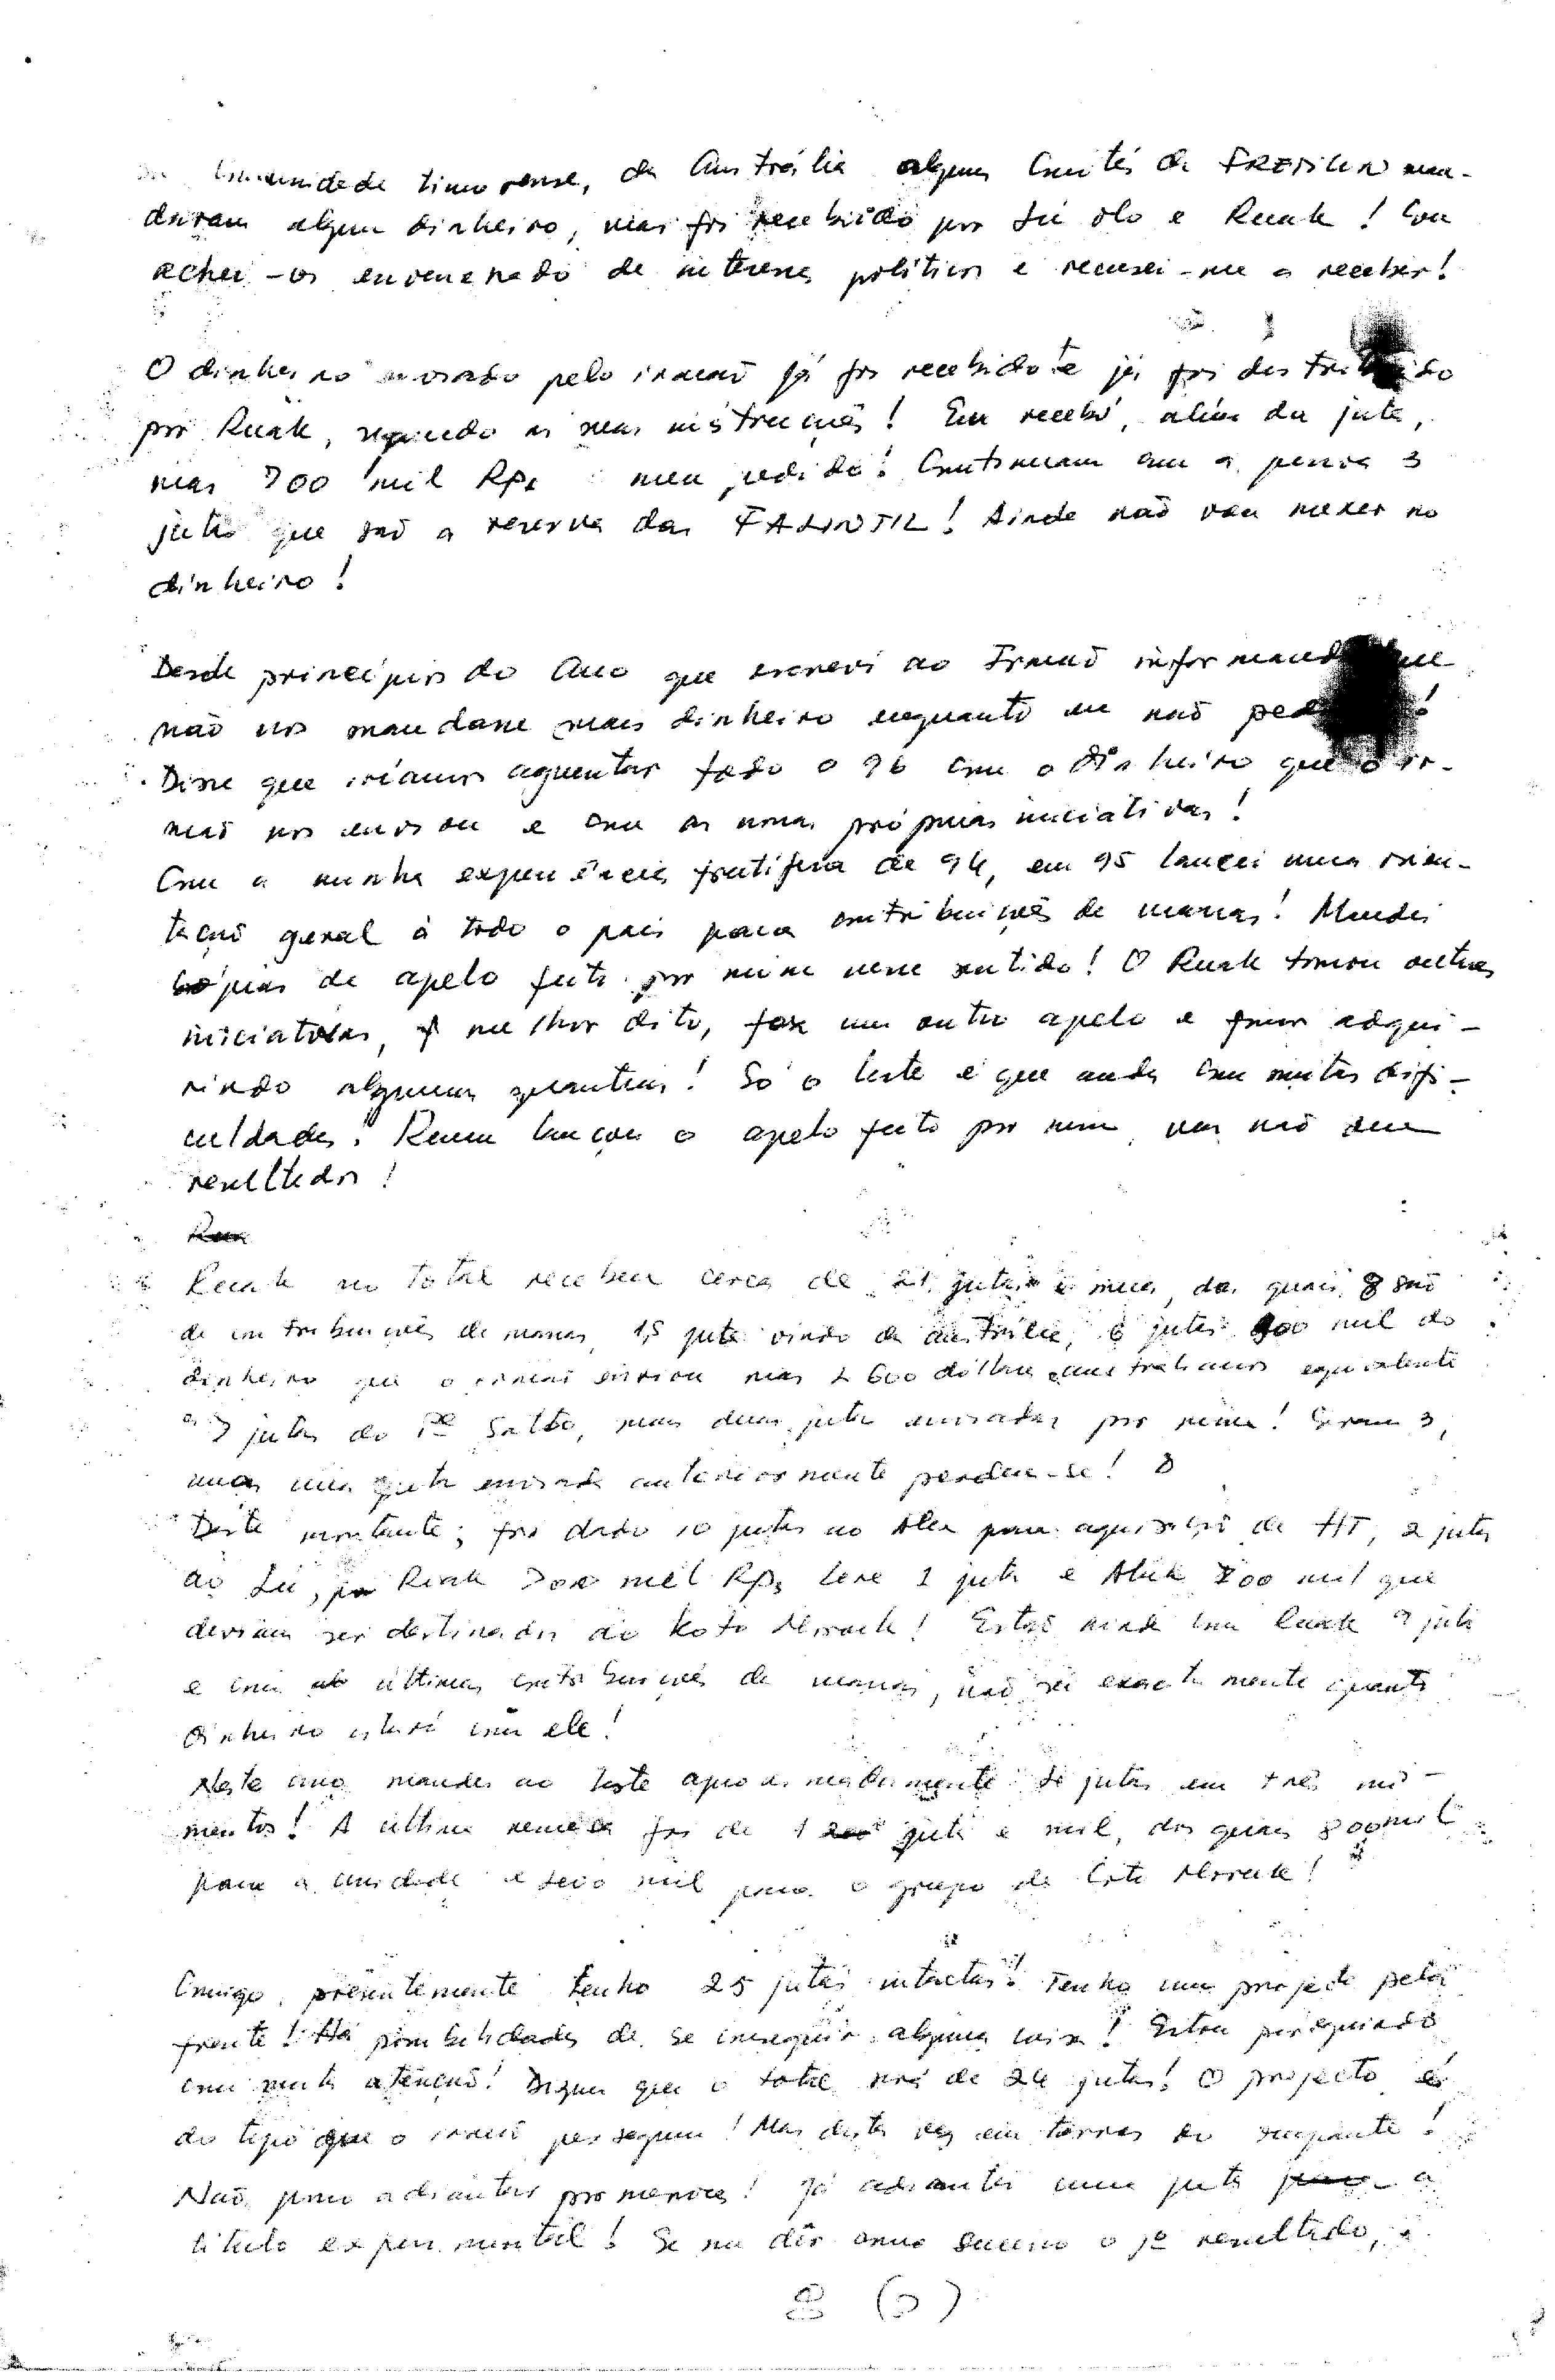 comunidade timorense, da Austrália alguns Comités da FRETILIN man-
daram algum dinheiro, mas foi recebido por Lú olo e Ruak! Cou
achei-os envenenado de interesses políticos e recusei-me a receber!
O dinheiro enviado pelo irmão já foi recebido e já foi distribuido
por Ruak, segundo as suas instruções! Eu recebi, além da juta,
mas 700 mil Rps meu pedido! Continuam com a pessoa 3
jutas que são a reserva das FALINTIL! Ainda não vou mexer no
dinheiro!
Desde principios do Ano que escrevi ao Irmão informando que
não nos mandasse mais dinheiro enquanto eu não
Disse que iriamos aguentar todo o 96 com o dinheiro que o ir-
mão nos enviou e com as nossas próprias iniciativas!
Com a minha experiência frutifera de 94, em 95 lancei uma orien-
tação geral à todo o país para contribuições de massas! Mandei
cópias de apelo feito por mim nesse sentido! O Ruak tomou outras
iniciativas, melhor dito, fez um outro apelo e fomos adqui-
rindo algumas quantias! Só o leste é que anda com muitas difi-
culdades! lançou o apelo feito por mim, mas não deu
resultados!
Ruak no total recebeu cerca de 21 jutas e meia, das quais 8 são
de contribuições de massas, 1,5 juta vindo da Austrália, 6 jutas 900 mil do
dinheiro que o irmão enviou mas 2600 dollars australianos equivalente
a 3 jutas do Salto, mais duas jutas enviadas por mim! Eram 3,
mas uma juta enviada anteriormente perdeu-se!
Deste montante, foi dado 10 jutas ao Alex para aquisição de HT, 2 jutas
ao Lú, Ruak 700 mil Rps, Lere 1 juta e 700 mil que
deviam ser destinados ao Koto Morouk! Estão ainda com Ruak 9 jutas
e com as últimas contribuições de massas, não sei exactamente quanto
dinheiro estará com ele!
Neste ano mandei ao leste aproximadamente jutas em três mo-
mentos! A última remessa foi de 1 juta e mil, dos quais 800 mil
para a unidade e mil para o grupo do Coto Morouk!
Comigo, presentemente tenho 25 jutas intactas! Tenho um projecto pela
frente! Há possibilidades de se conseguir alguma coisa! Estou perseguindo
com muita atenção! Dizem que o total será de 24 jutas! O projecto é
do tipo que o irmão perseguiu! Mas desta vez em terras do ocupante!
Não posso adiantar pormenores! Já adiantei uma juta a
título experimental! Se me dêr como sucesso o 1º resultado,